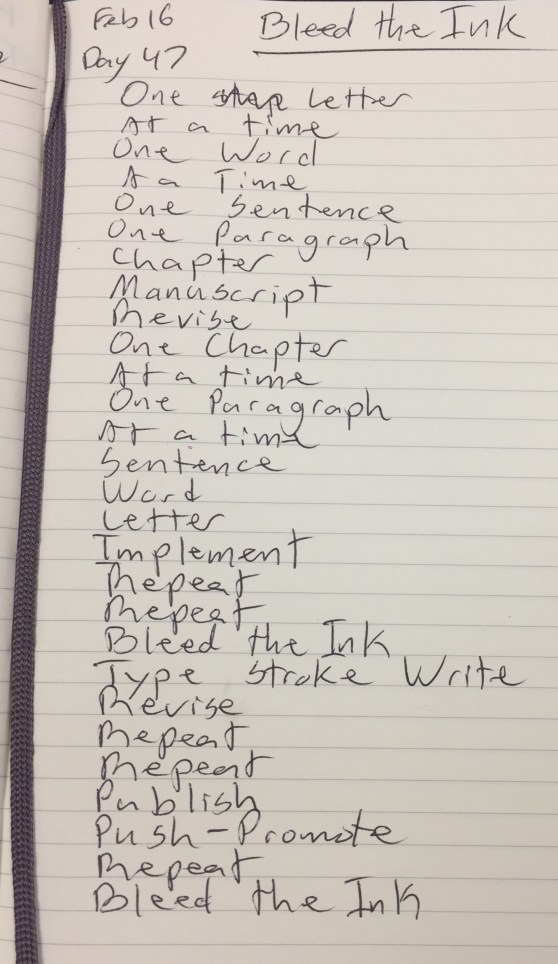 Feb 16 Bleed the Ink
Day 47
One step Letter
At a time
One Word
At a Time
One Sentence
One Paragraph
Chapter
Manuscript
Revise
One Chapter
At a time
One Paragraph
At a time
Sentence
Word
Letter
Implement
Repeat
Repeat
Bleed the Ink
Type Stroke Write
Revise
Repeat
Repeat
Publish
Push-Promote
Repeat
Bleed the Ink